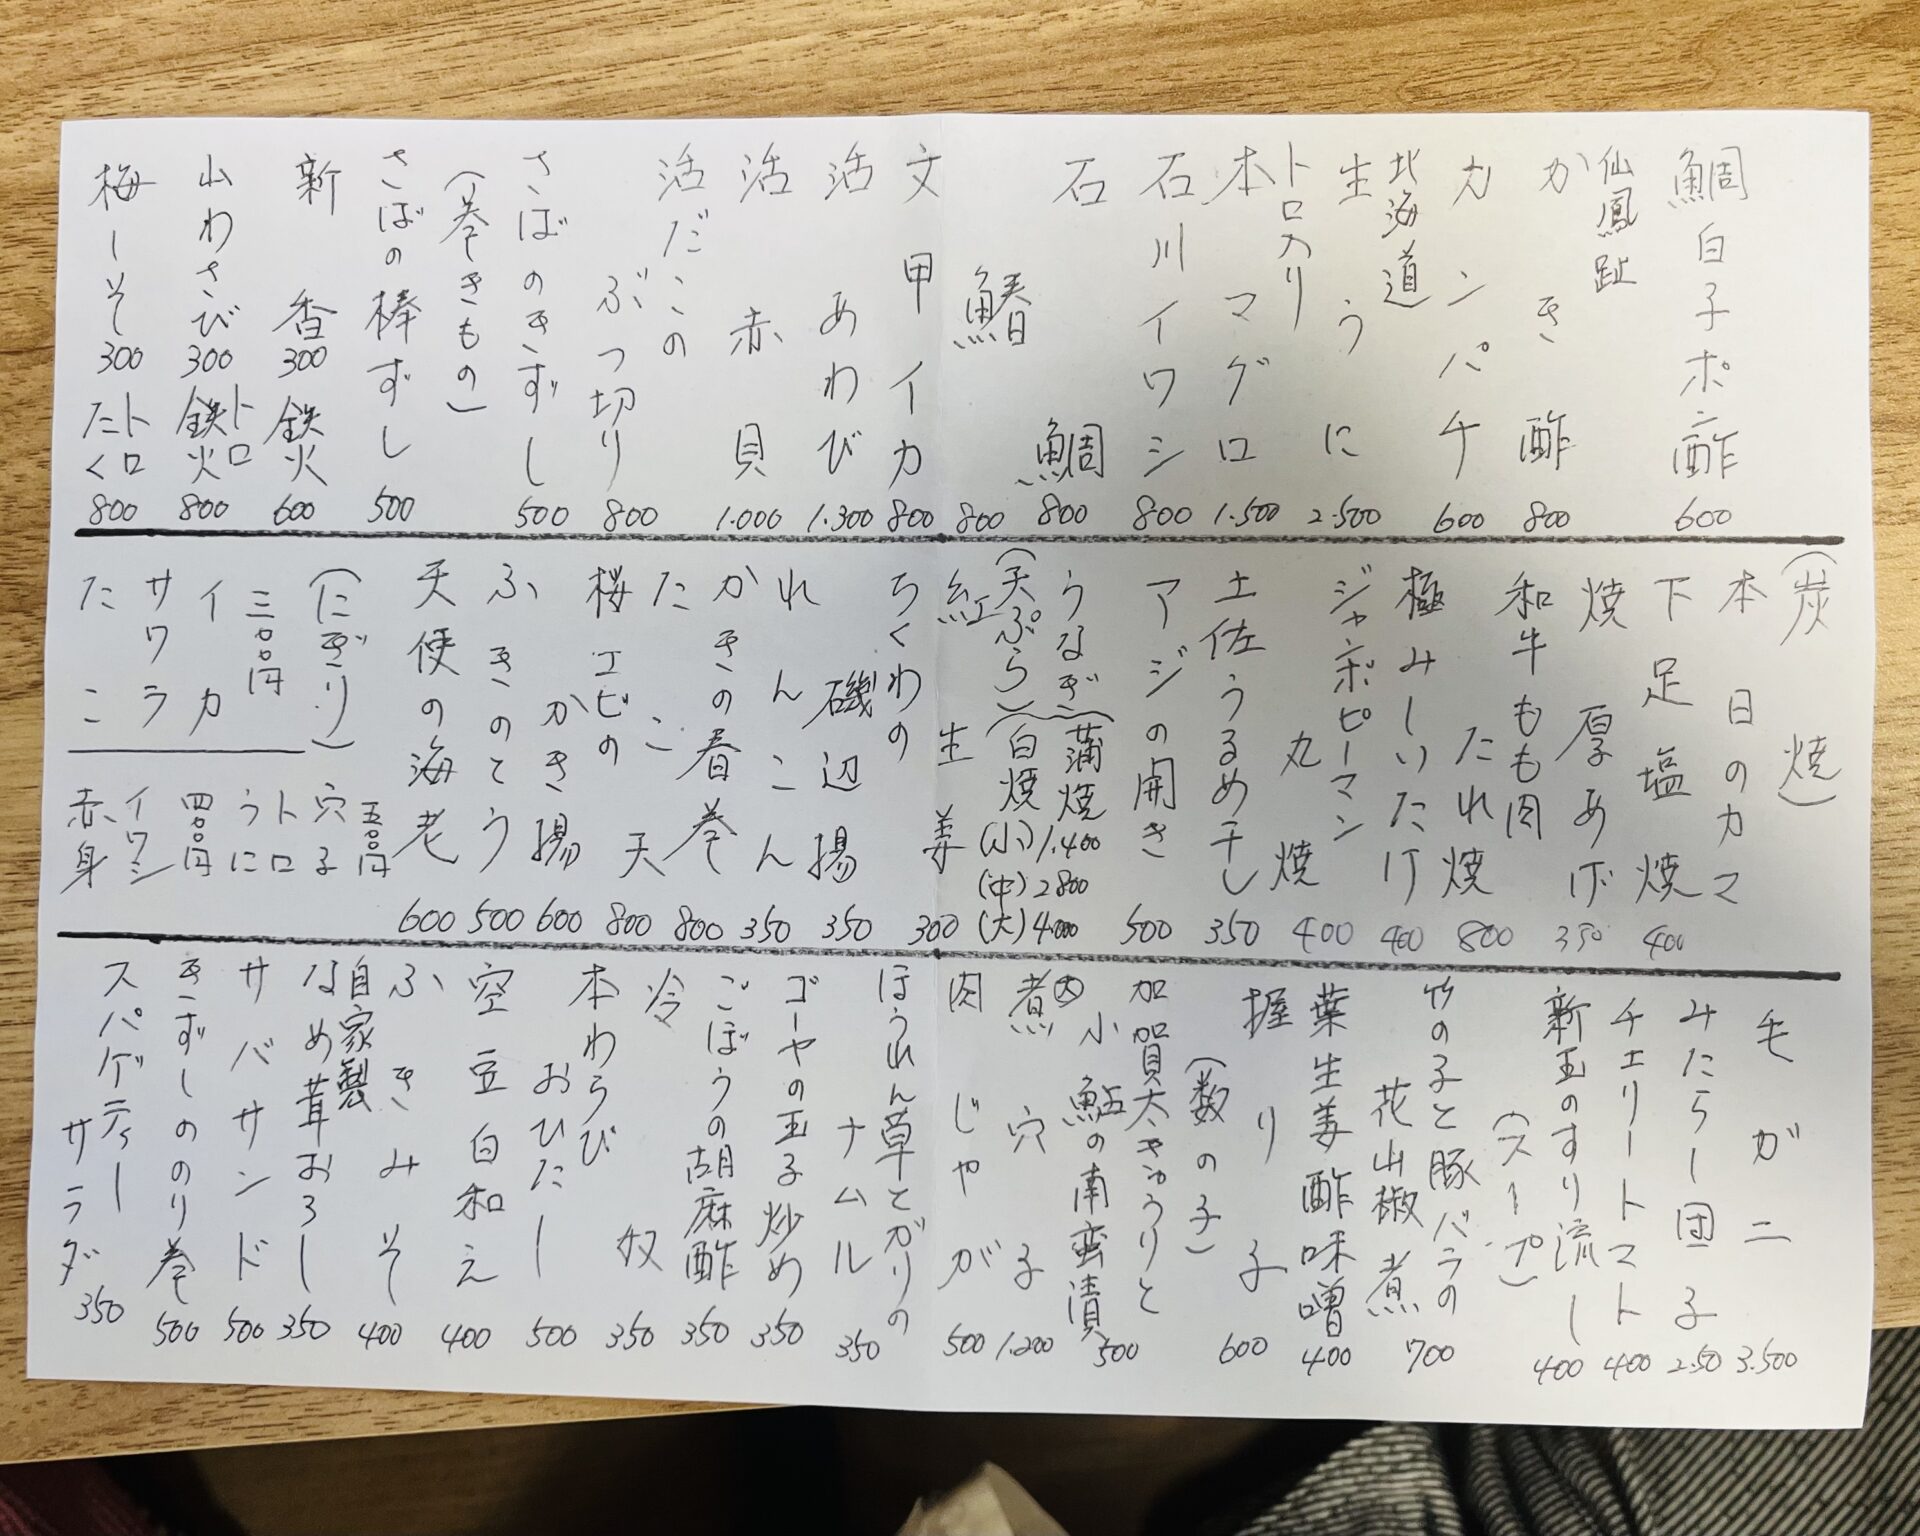 鯛白子ポン酢 600
仙鳳趾
かき酢 800
カンパチ 600
北海道
生うに 2.500
トロ入り
本マグロ 1.500
石川イワシ 800
石鯛 800
鰆 800
文甲イカ 800
活あわび 1.300
活赤貝 1.000
活だこの
ぶつ切り 800
さばのきずし 500
(巻きもの)
さばの棒ずし 500
新香 300
鉄火 600
山わさび 300
トロ
鉄火 800
梅しそ 300
トロ
たく 800
(炭焼)
本日のカマ
下足塩焼 400
焼厚あげ 350
和牛もも肉
たれ焼 800
極みしいたけ 400
ジャンボピーマン
丸焼 400
土佐うるめ干し 350
アジの開き 500
うなぎ(蒲焼
白焼
(小) 1.400
(中) 2.800
(大) 4.000
(天ぷら)
紅生姜 300
ちくわの
磯辺揚 350
れんこん 350
かきの春巻 800
たこ天 800
桜エビの
かき揚 600
ふきのとう 500
天使の海老 600
(にぎり)
三〇〇円
イカ
サワラ
たこ
五〇〇円
穴子
トロ
うに
四〇〇円
イワシ
赤身
毛ガニ 3.500
みたらし団子 250
チェリートマト 400
新玉のすり流し 400
(スープ)
竹の子と豚バラの
花山椒煮 700
葉生姜酢味噌 400
握り子 600
(数の子)
加賀太きゅうりと
小鮎の南蛮漬 500
煮穴子 1.200
肉じゃが 500
ほうれん草とがりの
ナムル 350
ゴーヤの玉子炒め 350
ごぼうの胡麻酢 350
冷奴 350
本わらび
おひたし 500
空豆白和え 400
ふきみそ 400
自家製
なめ茸おろし 350
サバサンド 500
きずしののり巻 500
スパゲティー
サラダ 350